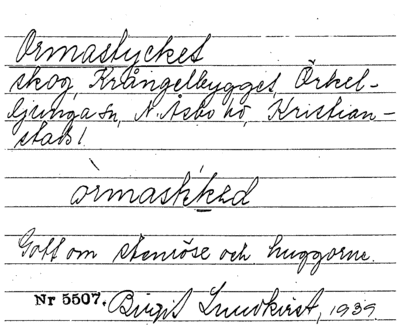 Ormastycket
skog, Krångelbygget, Örkel-
ljunga sn, N. Åsbo hd, Kristian-
stads l.
Gott om stenröse och huggorne.
Nr 5507. Birgit Lundkvist, 1939